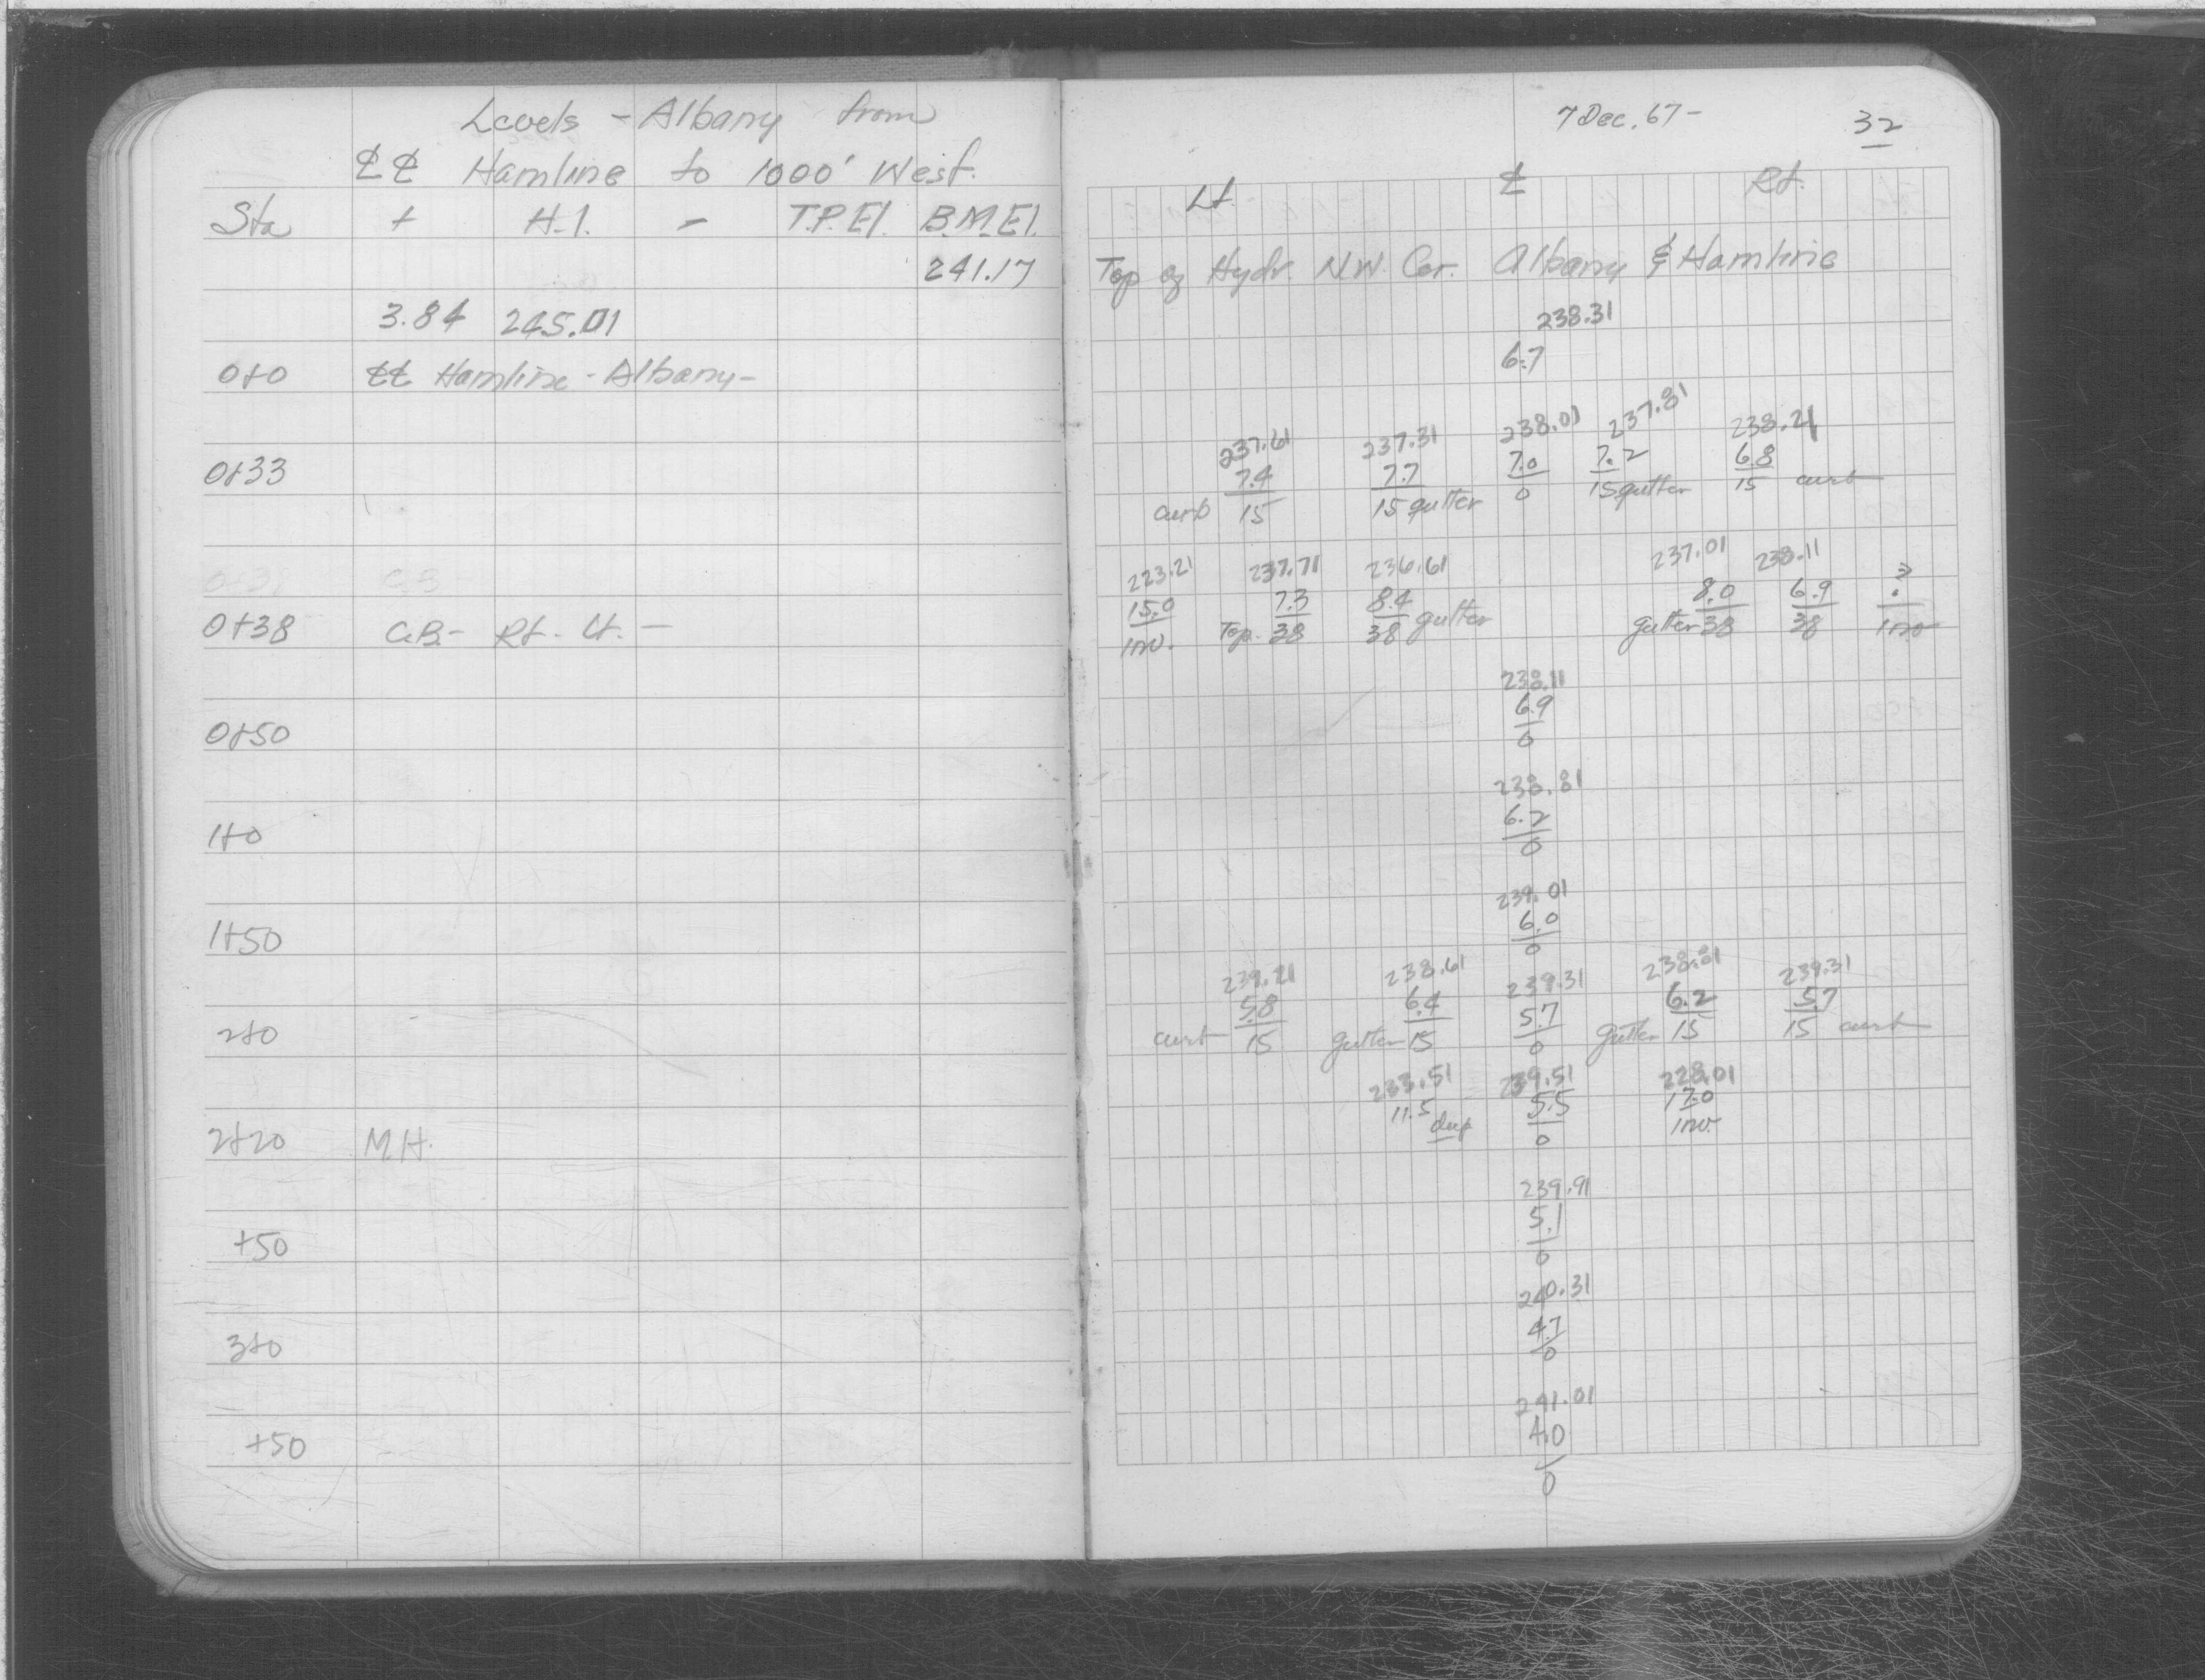 Levels - Albany from
℄ ℄ Hamline to 1000' West.
Sta + H.I. - T.P. El. B.M. El.
241.17
3.84 245.01
0+0 ℄℄ Hamline - Albany -
0+33
0+38 C.B. - Rt. - Lt. -
0+50
1+0
1+50
2+0
2+20 M.H.
+50
3+0
+50
7 Dec. 67 - 32
Lt. ℄ Rt.
Top of Hydr. N.W. Cor. Albany & Hamline
238.31
6.7
237.61 237.31 238.01 237.81 238.21
7.4 7.7 7.0 7.2 6.8
curb 15 15 gutter 0 15 gutter 15 curb
223.21 237.71 236.61 237.01 238.11
15.0 7.3 8.4 8.0 6.9 ?
inv. Top. 38 38 gutter gutter 38 38 inv
238.11
6.9
0
238.81
6.2
0
239.01
6.0
0
239.21 238.61 239.31 238.81 239.31
5.8 6.4 5.7 6.2 5.7
curb 15 gutter 15 0 gutter 15 15 curb
233.51 239.51 228.01
11.5 deep 5.5 17.0
0 inv.
239.91
5.1
0
240.31
4.7
0
241.01
4.0
0